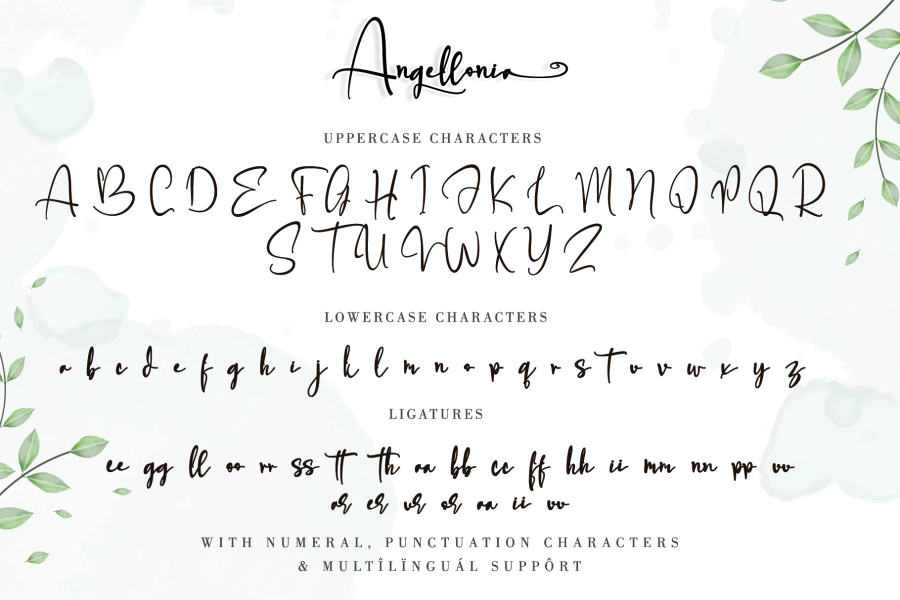 Angellonia
UPPERCASE CHARACTERS
A B C D E F G H I J K L M N O P Q R
S T U V W X Y Z
LOWERCASE CHARACTERS
a b c d e f g h i j k l m n o p q r s t u v w x y z
LIGATURES
ee gg ll oo rr ss tt th aa bb cc ff hh ii mm nn pp vv
ar er ur or aa ii vv
WITH NUMERAL, PUNCTUATION CHARACTERS
& MULTÎLÏNGUÁL SUPPÔRT